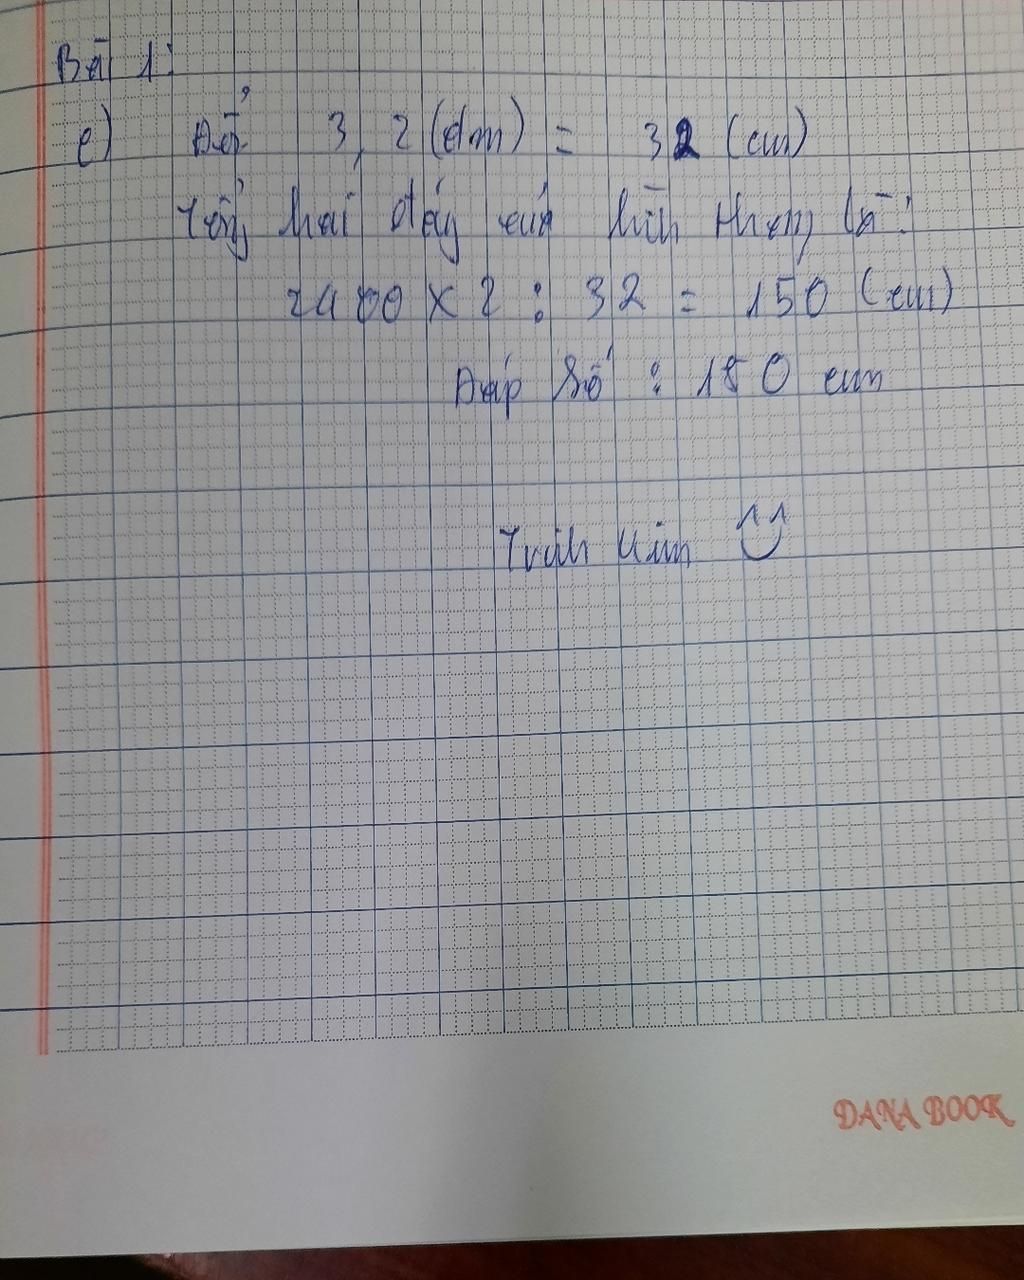 Bài 1:
c) Đổi 3,2 (dm) = 32 (cm)
Tổng hai đáy của hình thang là:
2400 x 2 : 32 = 150 (cm)
Đáp số : 150 cm
Trình
DANA BOOK